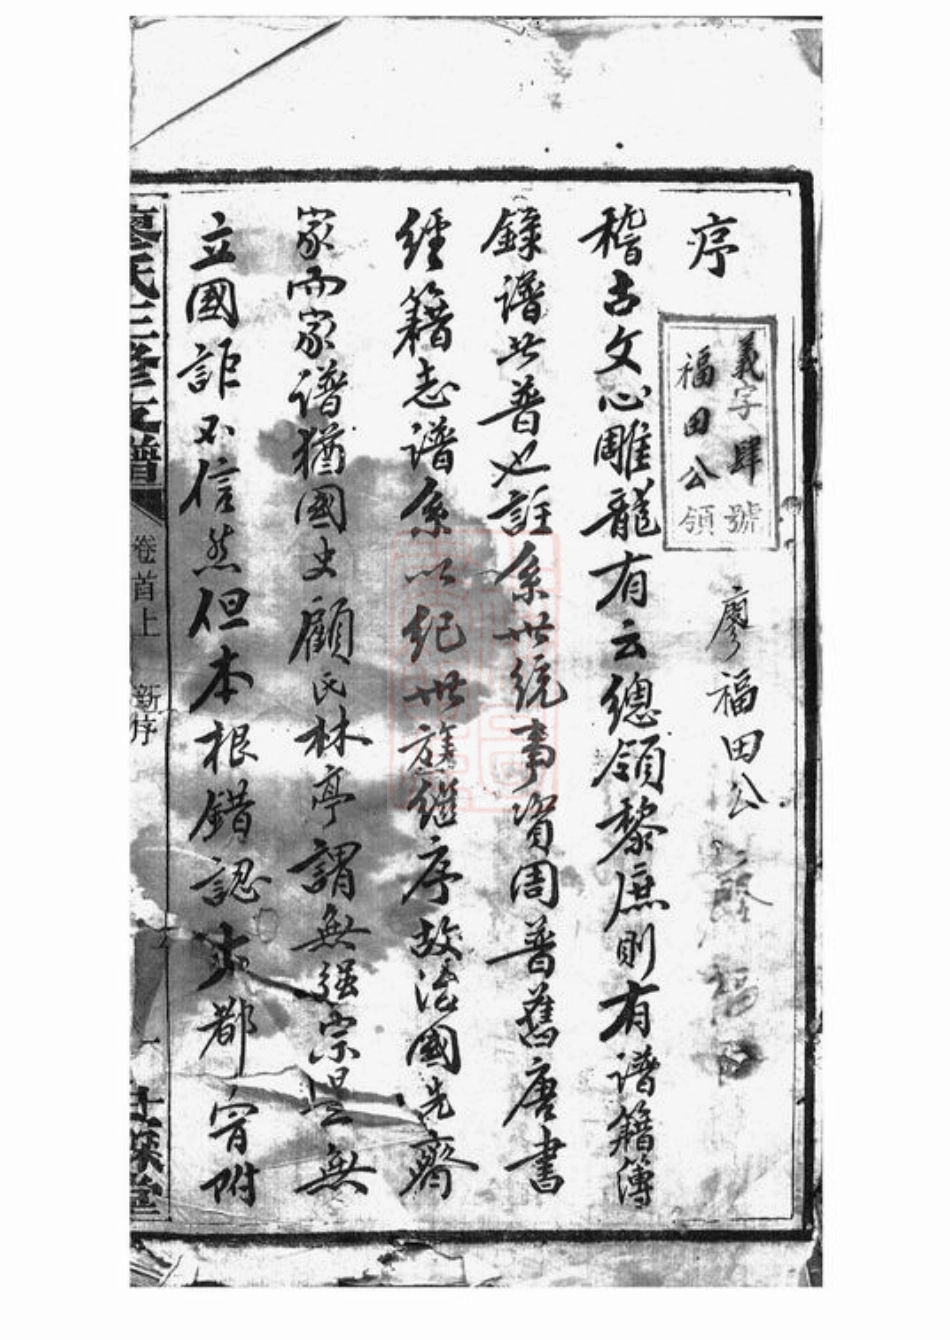 序
義字肆號
福田公領
廖福田公
福
稽古文心雕龍有云總領黎庶則有譜籍簿
錄譜者普也註系世統事資周普舊唐書
經籍志譜系以紀世族繼序故治國先齊
家而家譜猶國史顧氏林亭謂無强宗是無
立國詎不信然但本根錯認求都
附
廖氏三修支譜
卷首上
新序
一